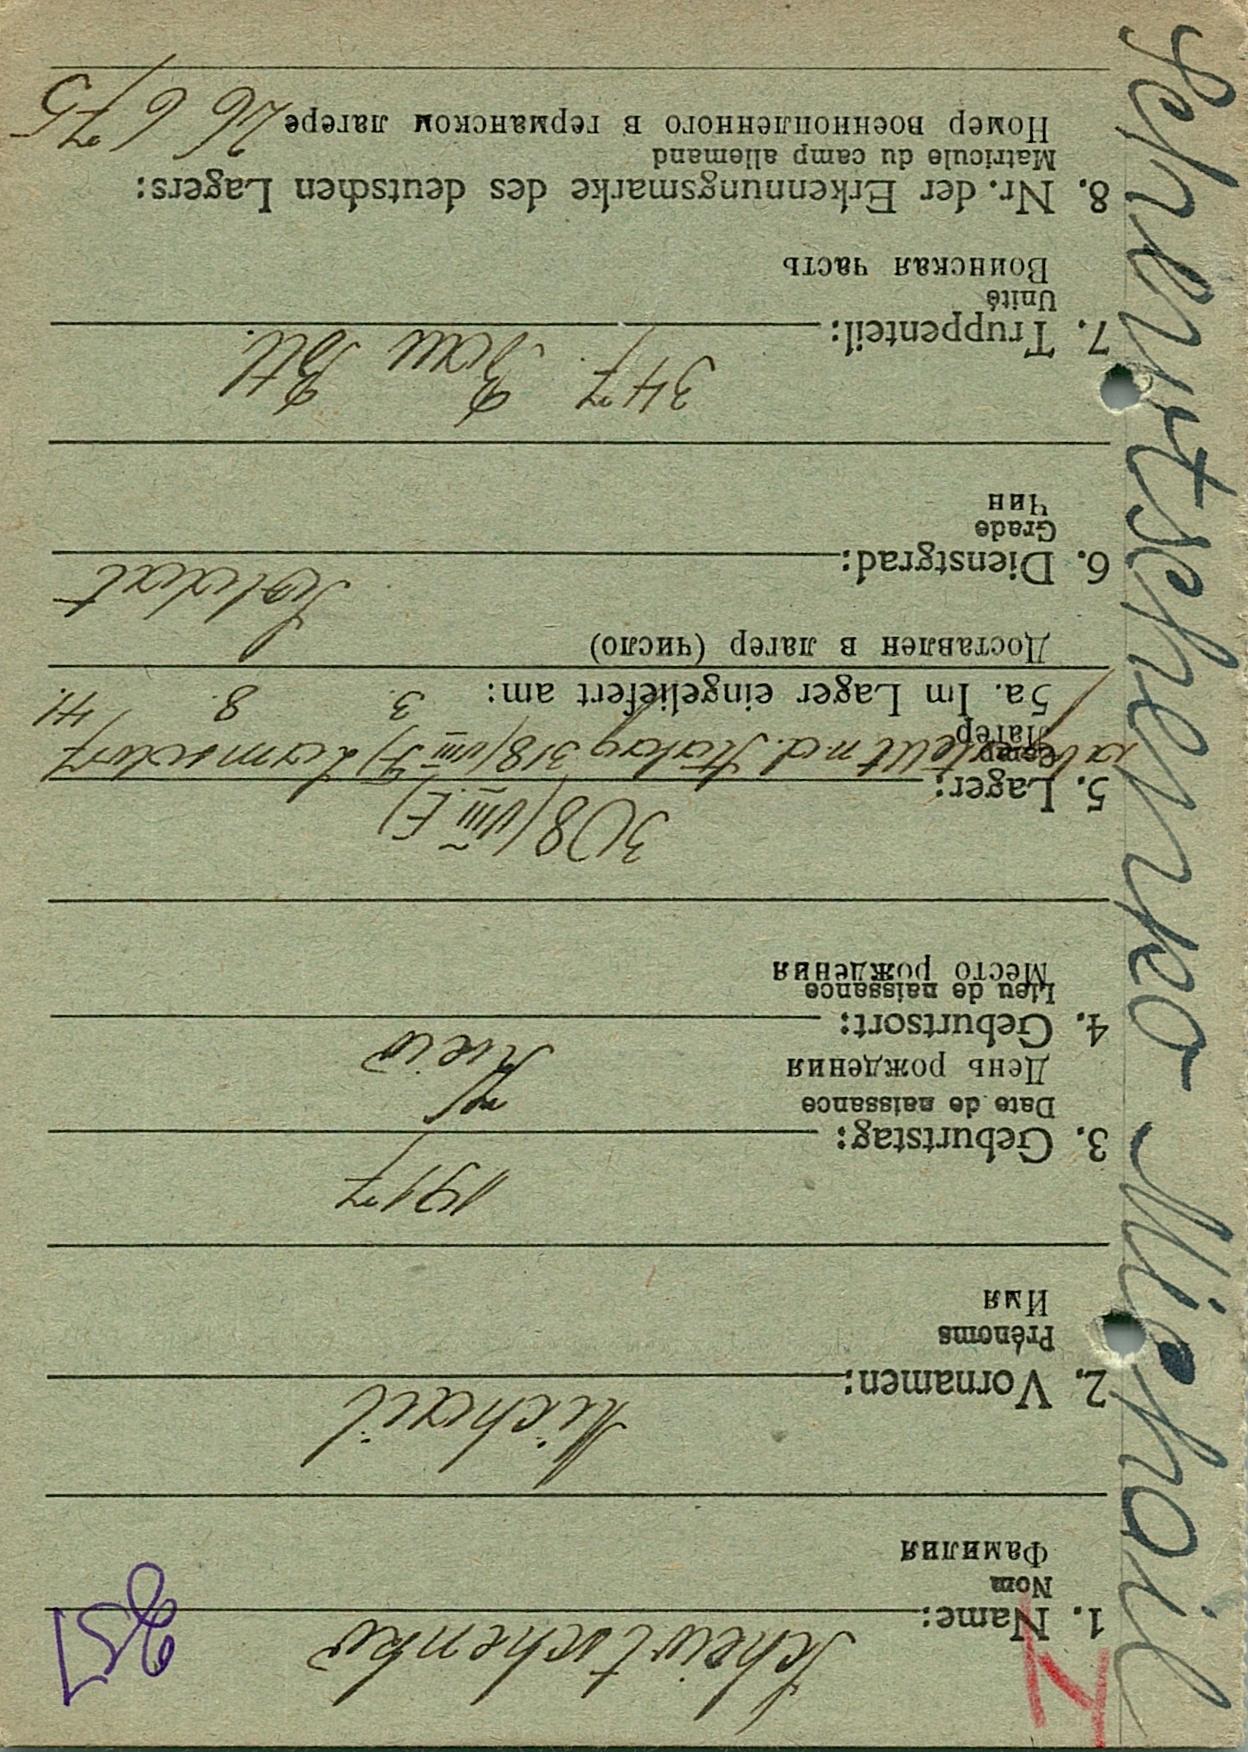 Schewtschenko Michail
1. Name: Schewtschenko
Nom
Фамилия
2. Vornamen: Michail
Prénoms
Имя
3. Geburtstag: 1917
Date de naissance
День рождения
4. Geburtsort: Kiew
Lieu de naissance
Место рождения
5. Lager: 308 (VIII E)
Camp
Лагерь
m d. Stalag 318 (VIII F) Lamsdorf
5a. Im Lager eingeliefert am: 3. 8. 41.
Доставлен в лагер (число)
6. Dienstgrad: Soldat
Grade
Чин
7. Truppenteil: 347. Bau Btl.
Unité
Воинская часть
8. Nr. der Erkennungsmarke des deutschen Lagers:
Matricule du camp allemand
Номер военнопленного в германском лагере 26675